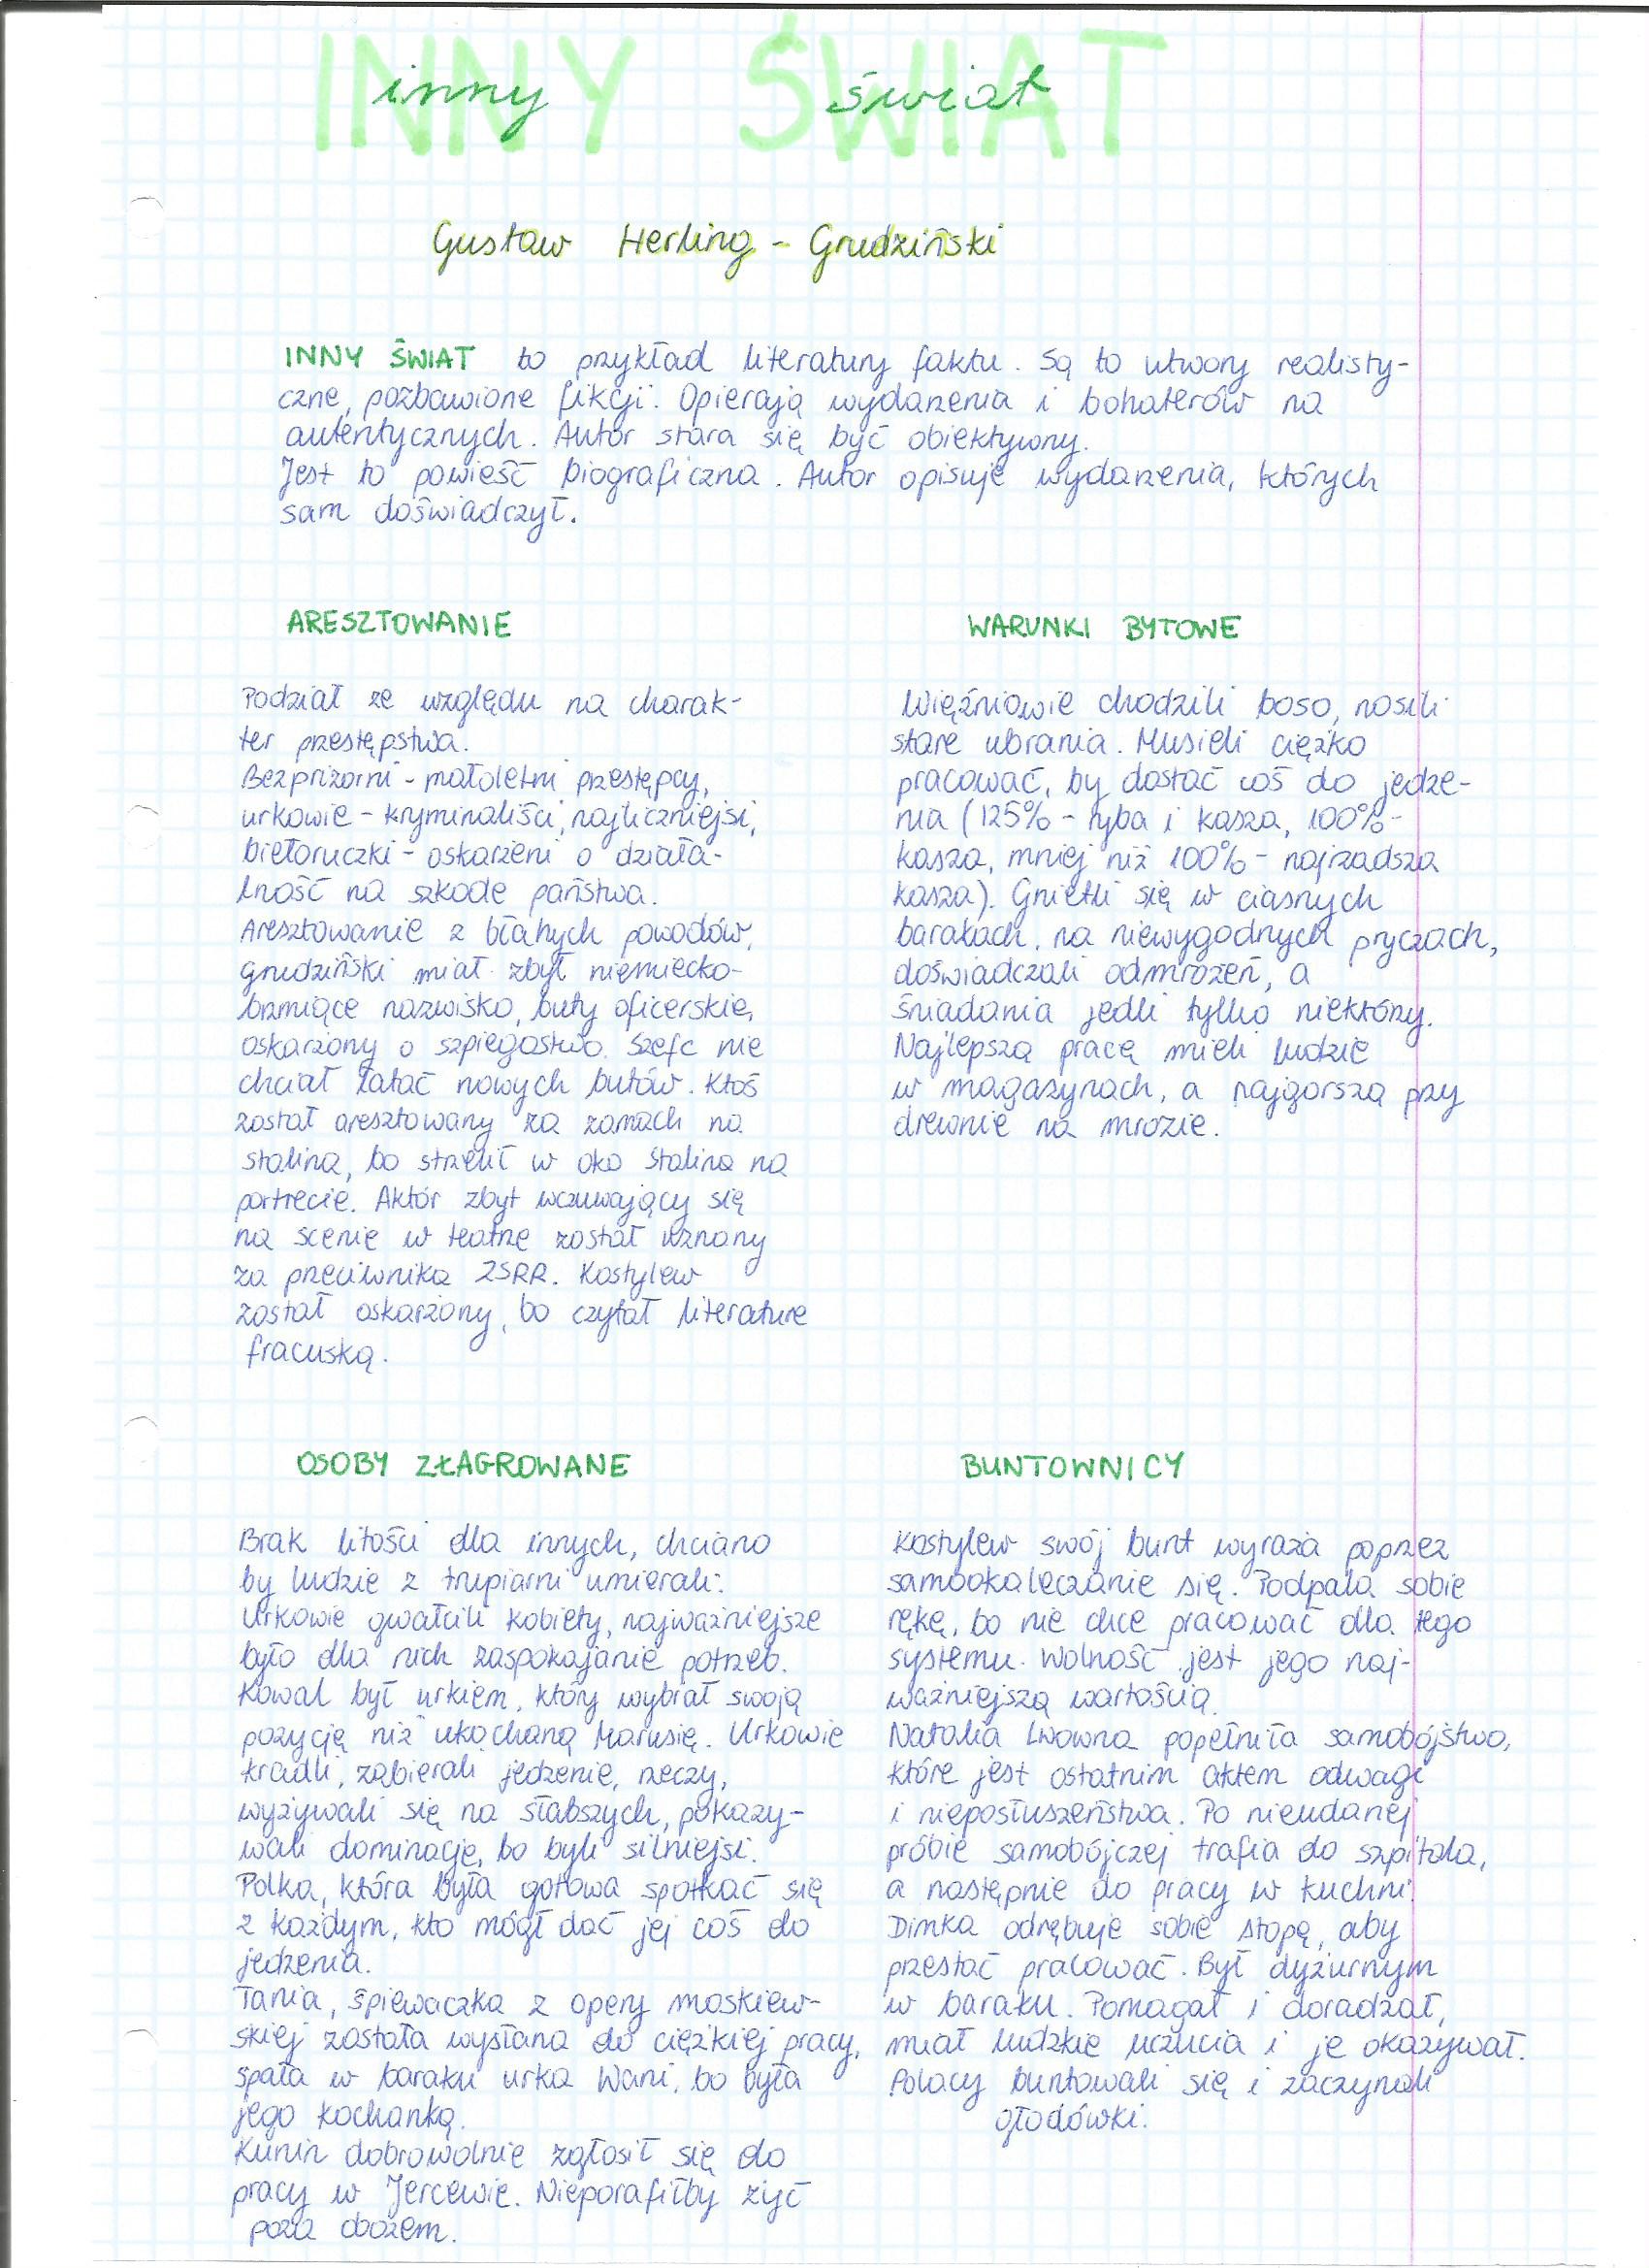 INNY ŚWIAT
inny świat
Gustaw Herling - Grudziński
INNY ŚWIAT to przykład literatury faktu. Są to utwory realisty-
czne, pozbawione fikcji. Opierają wydarzenia i bohaterów na
autentycznych. Autor stara się być obiektywny.
Jest to powieść biograficzna. Autor opisuje wydarzenia, których
sam doświadczył.
ARESZTOWANIE
Podział ze względu na charak-
ter przestępstwa.
Bezprizorni - małoletni przestępcy,
urkowie - kryminaliści, najliczniejsi,
biełoruczki - oskarżeni o działa-
lność na szkodę państwa.
Aresztowanie z błahych powodów,
grudziński miał zbyt niemiecko-
brzmiące nazwisko, buty oficerskie,
oskarżony o szpiegostwo. Szefc nie
chciał łatać nowych butów. Ktoś
został aresztowany za zamach na
stalina, bo strzelił w oko Stalina na
portrecie. Aktór zbyt wczuwający się
na scenie w teatrze został uznany
za przeciwnika ZSRR. Kostylew
został oskarżony, bo czytał literature
fracuską.
WARUNKI BYTOWE
Więźniowie chodzili boso, nosili
stare ubrania. Musieli ciężko
pracować, by dostać coś do jedze-
nia (125% - ryba i kasza, 100% -
kasza, mniej niż 100% - najrzadsza
kasza). Gnietli się w ciasnych
barakach, na niewygodnych pryczach,
doświadczali odmrożeń, a
śniadania jedli tylko niektórzy.
Najlepszą pracę mieli ludzie
w magazynach, a najgorszą przy
drewnie na mrozie.
OSOBY ZŁAGROWANE
Brak litości dla innych, chciano
by ludzie z trupiarni umierali.
Urkowie gwałcili kobiety, najważniejsze
było dla nich zaspokajanie potrzeb.
Kowal był urkiem, który wybrał swoją
pozycję niż ukochaną Marusię. Urkowie
kradli, zabierali jedzenie, rzeczy,
wyżywali się na słabszych, pokazy-
wali dominację, bo byli silniejsi.
Polka, która była gotowa spotkać się
z każdym, kto mógł dać jej coś do
jedzenia.
Tania, śpiewaczka z opery moskiew-
skiej została wysłana do ciężkiej pracy,
spała w baraku urka Wani, bo była
jego kochanką.
Kunin dobrowolnie zgłosił się do
pracy w Jercewie. Nieporafiłby żyć
poza obozem.
BUNTOWNICY
Kostylew swój bunt wyraża poprzez
samookaleczanie się. Podpala sobie
rękę, bo nie chce pracować dla tego
systemu. Wolność jest jego naj-
ważniejszą wartością.
Natalia Lwowna popełniła samobójstwo,
które jest ostatnim aktem odwagi
i nieposłuszeństwa. Po nieudanej
próbie samobójczej trafia do szpitala,
a następnie do pracy w kuchni.
Dimka odrębuje sobie stopę, aby
przestać pracować. Był dyżurnym
w baraku. Pomagał i doradzał,
miał ludzkie uczucia i je okazywał.
Polacy buntowali się i zaczynali
głodówki.